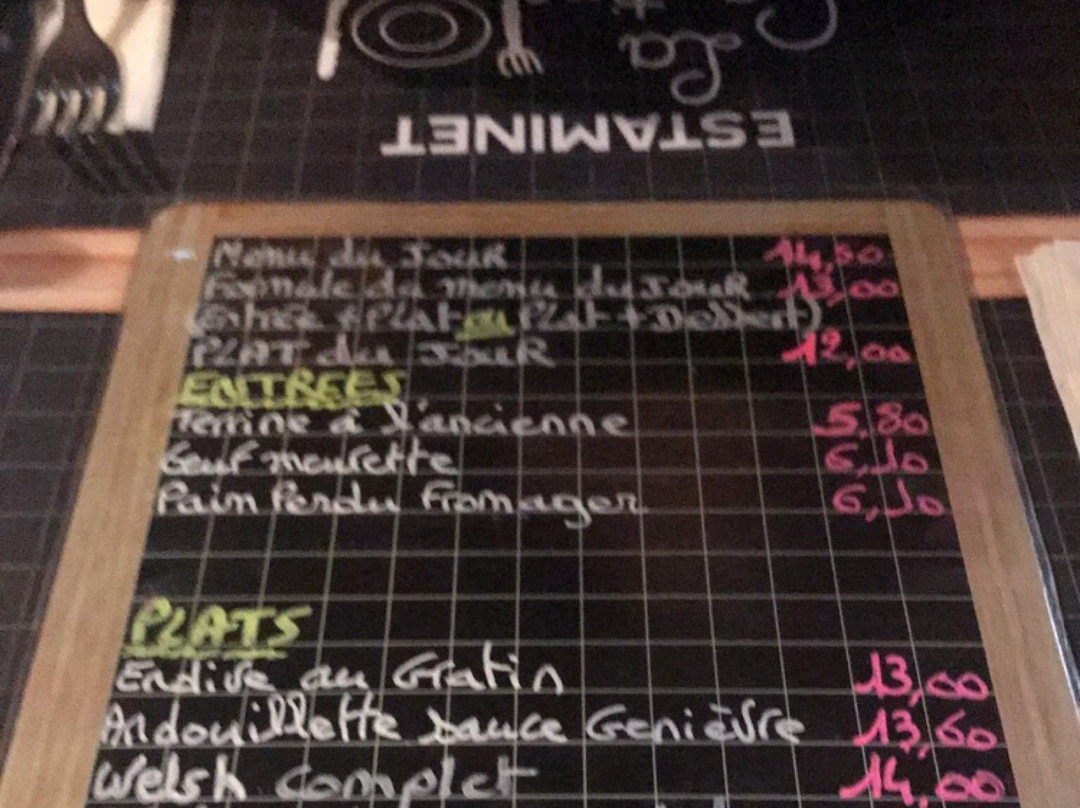 La
ESTAMINET
Menu du Jour 14,50
Formule du menu du Jour 13,00
(Entrée + Plat ou Plat + Dessert)
PLAT du JouR 12,00
ENTREES
Terrine à l'ancienne 5,80
Oeuf meurette 6,10
Pain Perdu Fromager 6,10
PLATS
Endive au Gratin 13,00
Andouillette Sauce Genièvre 13,60
Welsh complet 14,00